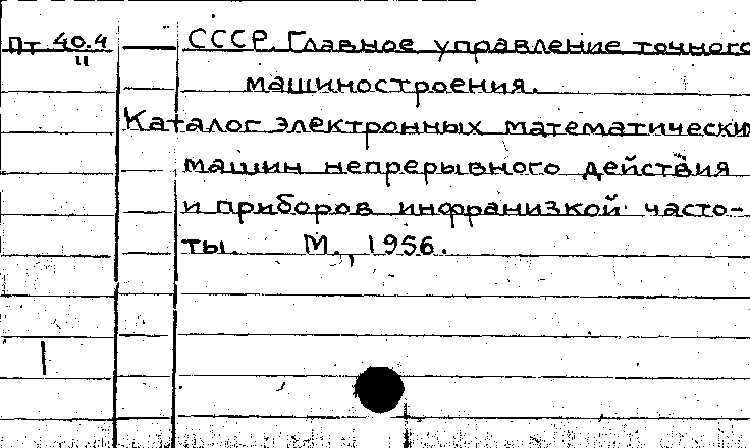 Пт 40.4 СССР. Главное управление точного
11
машиностроения.
Каталог электронных математически
машин непрерывного действия
и приборов инфранизкой часто-
ты. М., 1956.